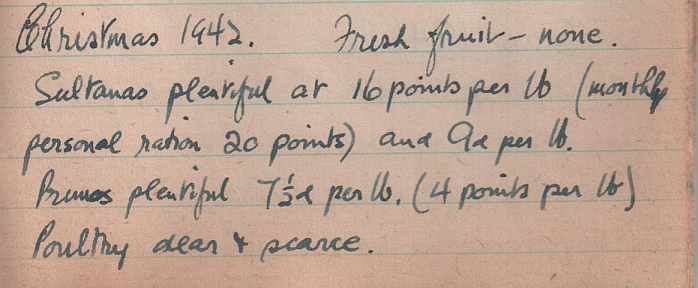 Christmas 1942. Fresh fruit - none.
Sultanas plentiful at 16 points per lb (monthly
personal ration 20 points) and 9d per lb.
Prunes plentiful 7½d per lb. (4 points per lb)
Poultry dear & scarce.